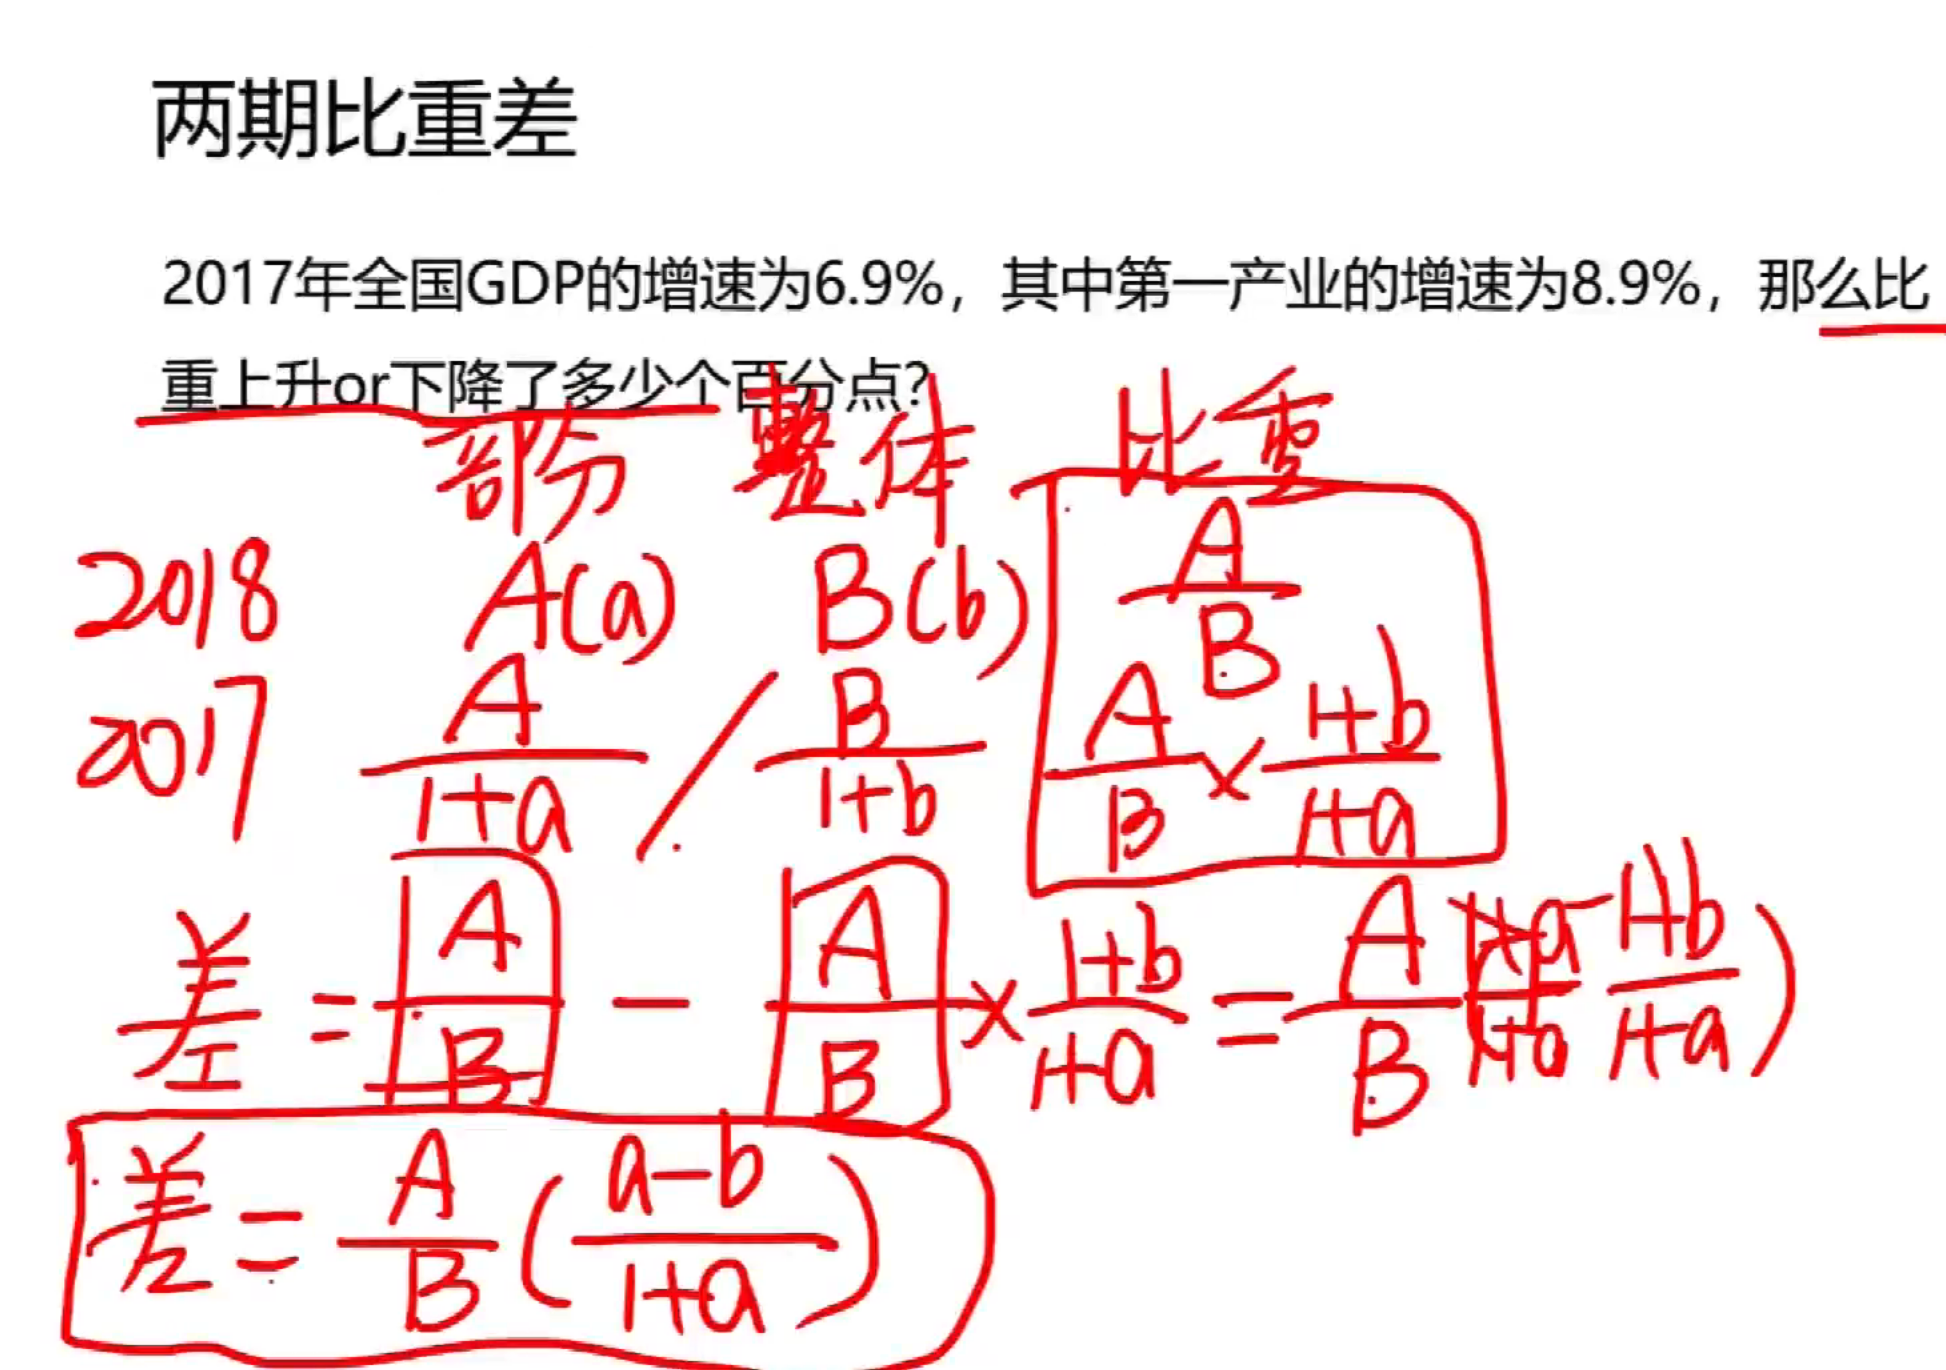 两期比重差
2017年全国GDP的增速为6.9%，其中第一产业的增速为8.9%，那么比
重上升or下降了多少个百分点？
部分 整体 比重
2018 A(a) B(b) A/B
2017 A/1+a / B/1+b A/B × 1+b/1+a
差 = A/B - A/B × 1+b/1+a = A/B (1+a/1+a - 1+b/1+a)
差 = A/B (a-b/1+a)